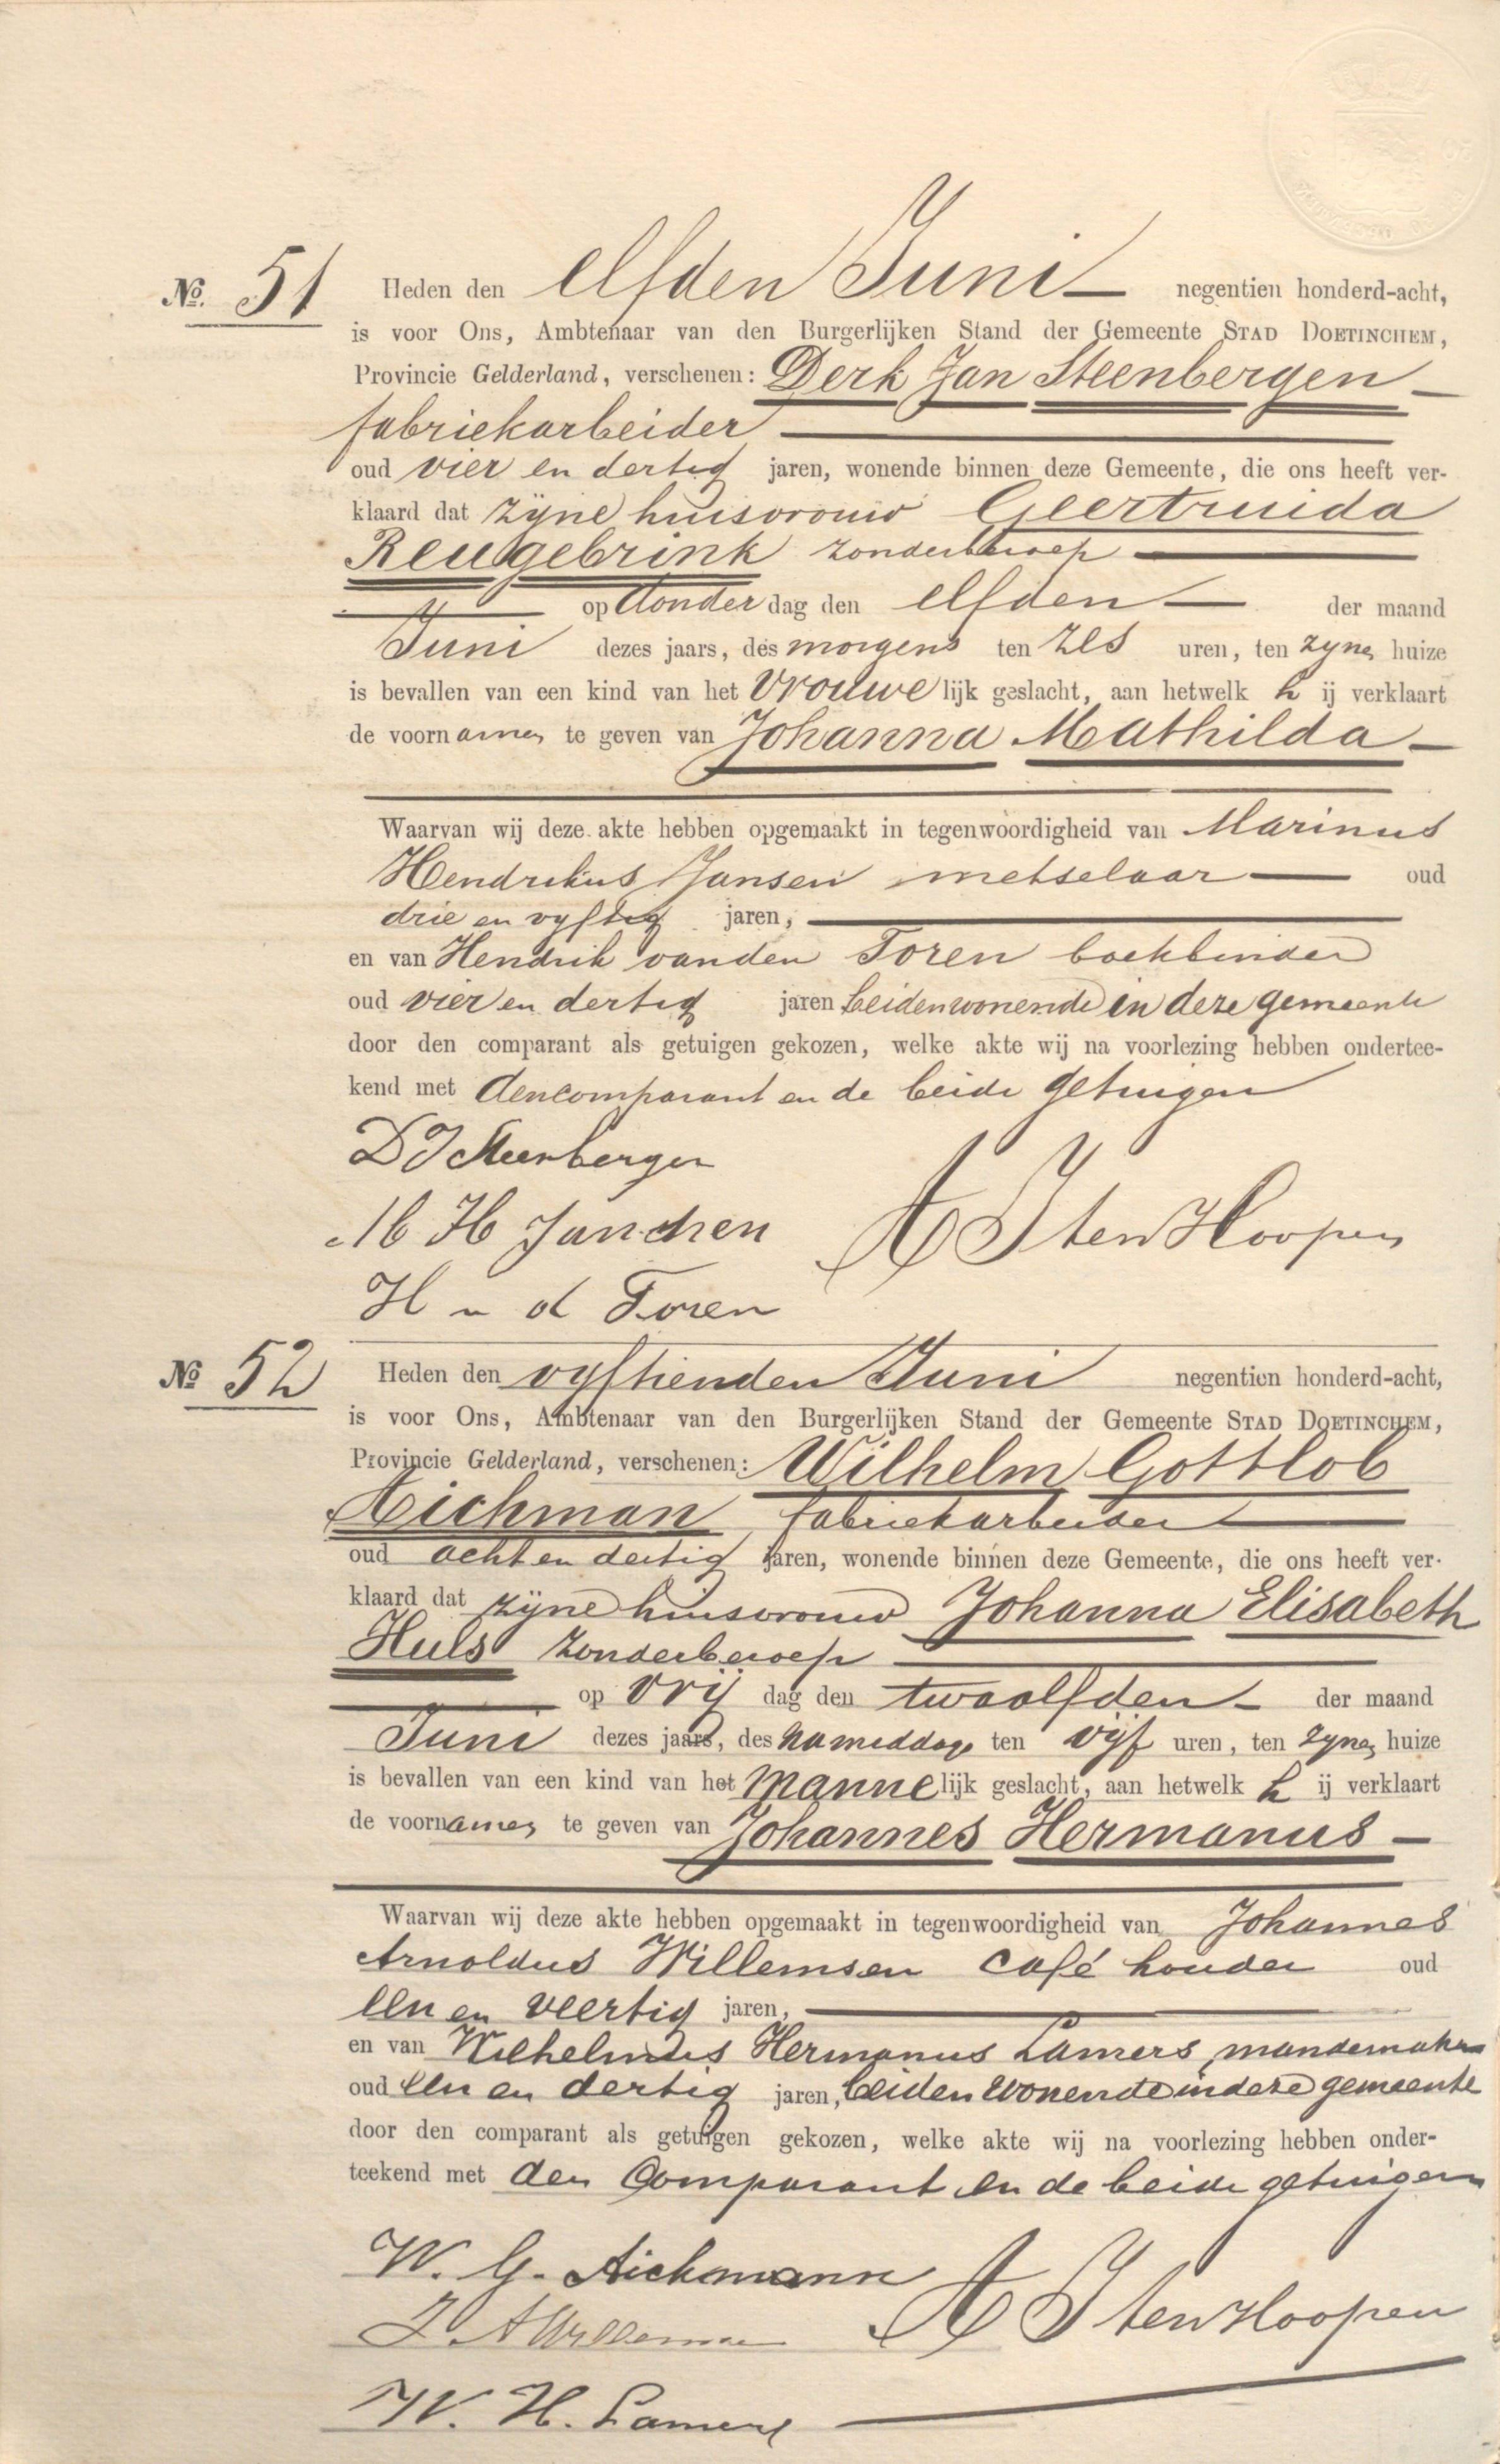 No. 51 Heden den elfden Juni negentien honderd-acht,
is voor Ons, Ambtenaar van den Burgerlijken Stand der Gemeente STAD DOETINCHEM,
Provincie Gelderland, verschenen: Derk Jan Steenbergen
fabriekarbeider
oud vier en dertig jaren, wonende binnen deze Gemeente, die ons heeft ver-
klaard dat zijne huisvrouw Geertruida
Reugebrink zonder beroep
op donder dag den elfden der maand
Juni dezes jaars, des morgens ten zes uren, ten zynen huize
is bevallen van een kind van het vrouwe lijk geslacht, aan hetwelk h ij verklaart
de voornamen te geven van Johanna Mathilda
Waarvan wij deze akte hebben opgemaakt in tegenwoordigheid van Marinus
Hendrikus Jansen metselaar oud
drie en vyftig jaren,
en van Hendrik van den Toren boekbinder
oud vier en dertig jaren beiden wonende in deze gemeente
door den comparant als getuigen gekozen, welke akte wij na voorlezing hebben ondertee-
kend met den comparant en de beide getuigen
D J Steenbergen
M H Janssen A J ten Hoopen
H v d Toren
No 52 Heden den vyftienden Juni negentien honderd-acht,
is voor Ons, Ambtenaar van den Burgerlijken Stand der Gemeente STAD DOETINCHEM,
Provincie Gelderland, verschenen: Wilhelm Gottlob
Aichman fabriekarbeider
oud acht en dertig jaren, wonende binnen deze Gemeente, die ons heeft ver-
klaard dat zijne huisvrouw Johanna Elisabeth
Huls zonder beroep
op vrij dag den twaalfden der maand
Juni dezes jaars, des namiddags ten vijf uren, ten zynen huize
is bevallen van een kind van het manne lijk geslacht, aan hetwelk h ij verklaart
de voornamen te geven van Johannes Hermanus
Waarvan wij deze akte hebben opgemaakt in tegenwoordigheid van Johannes
Arnoldus Willemsen café houder oud
een en veertig jaren,
en van Wilhelmus Hermanus Lamers, mandemaker
oud een en dertig jaren, beiden wonende in deze gemeente
door den comparant als getuigen gekozen, welke akte wij na voorlezing hebben onder-
teekend met den comparant en de beide getuigen
W. G. Aichmann
J. A Willemsen A J ten Hoopen
W. H. Lamers